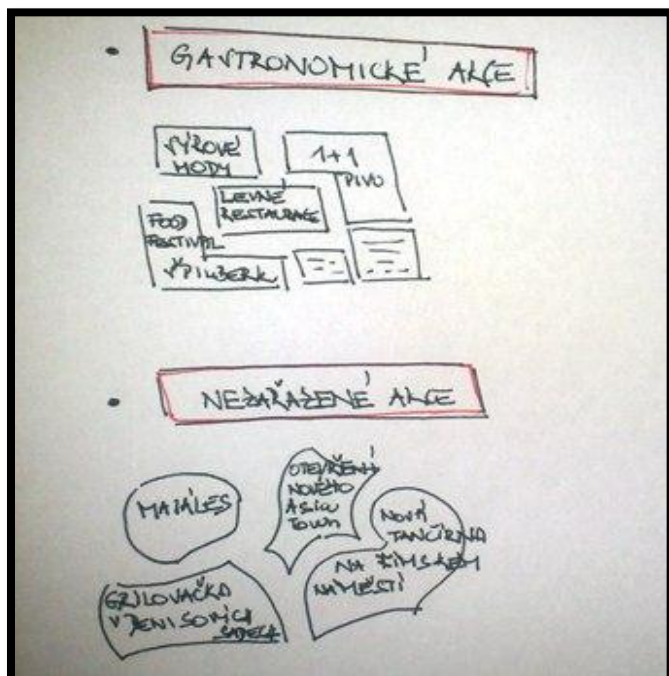 GASTRONOMICKÉ AKCE
SÝROVÉ
HODY
1+1
PIVO
LEVNÉ
RESTAURACE
FOOD
FESTIVAL
ŠPILBERK
NEZAŘAZENÉ AKCE
MAJÁLES
OTEVŘENÍ
NOVÉHO
Asia
Town
NOVÁ
TANČÍRNA
NA ŘÍMSKÉM
NÁMĚSTÍ
GRILOVAČKA
V DENISOVÝCH
SADECH